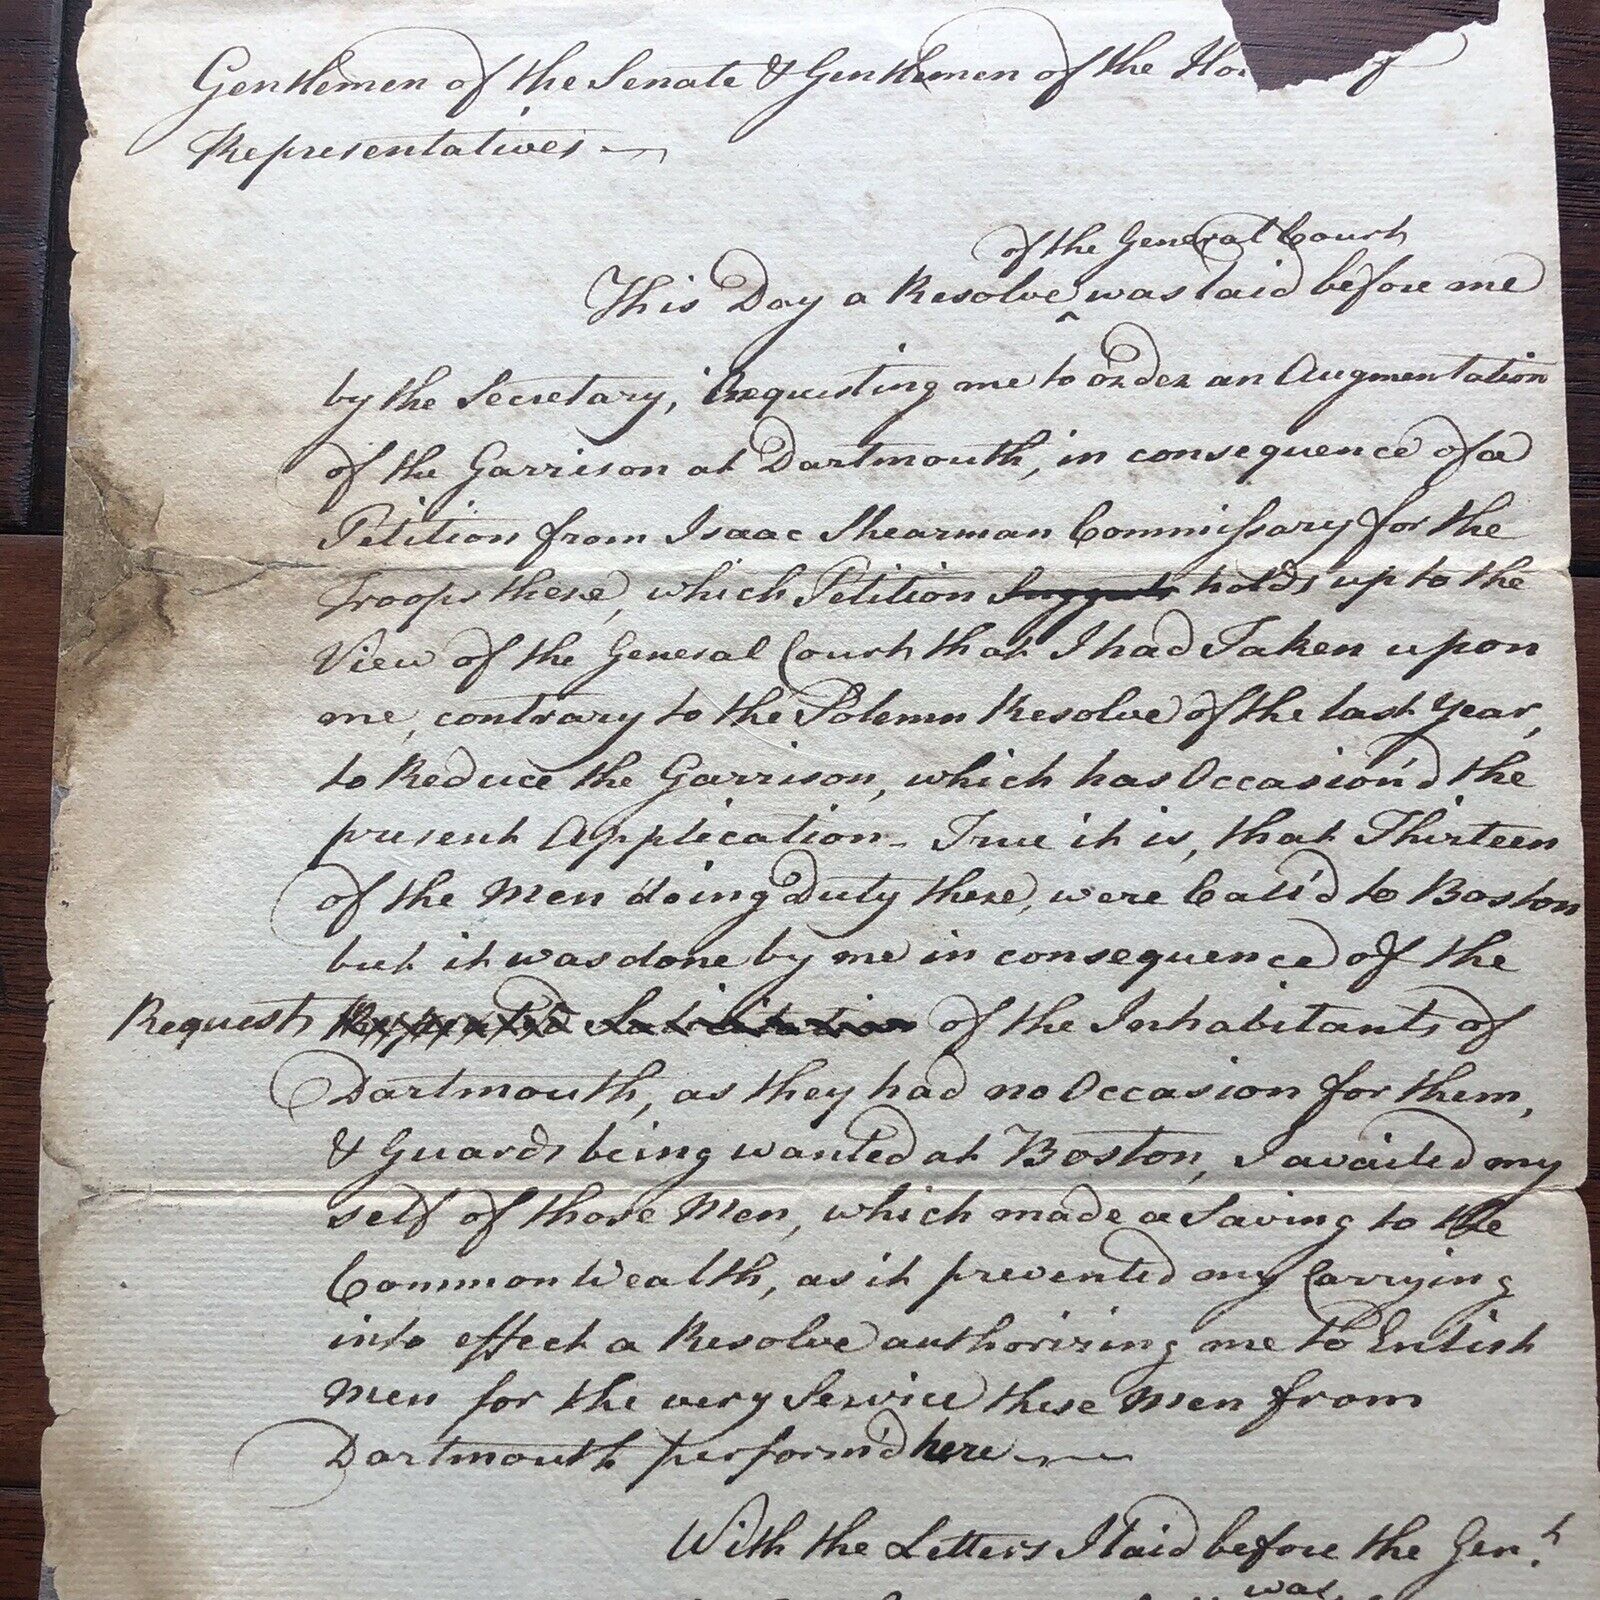 Gentlemen of the Senate & Gentlemen of the Hou of
Representatives
of the General Court
This Day a Resolve ^ was laid before me
by the Secretary, Requesting me to order an Augmentation
of the Garrison at Dartmouth, in consequence of a
Petition from Isaac Shearman Commissary for the
Troops there, which Petition Suggests holds up to the
View of the General Court that I had Taken upon
me, contrary to the Solemn Resolve of the last Year,
to Reduce the Garrison, which has Occasion'd the
present Application - True it is, that Thirteen
of the Men doing Duty there, were Call'd to Boston
but it was done by me in consequence of the
Request Repeated Solicitation of the Inhabitants of
Dartmouth, as they had no Occasion for them,
& Guards being wanted at Boston, I availed my
self of those Men, which made a Saving to the
Common Wealth, as it prevented my Carrying
into effect a Resolve authorizing me to Inlist
Men for the very Service these Men from
Dartmouth perform'd here
With the Letters I laid before the Gen.l
was